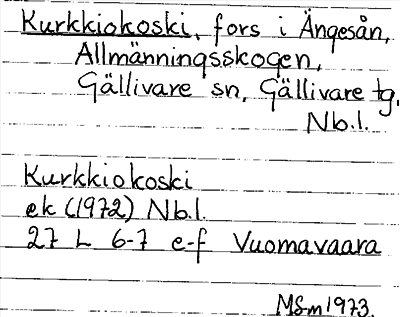 Kurkkiokoski, fors i Ängesån,
Allmänningsskogen,
Gällivare sn, Gällivare tg,
Nb.l.
Kurkkiokoski
ek (1972) Nb.l.
27 L 6-7 e-f Vuomavaara
MSm 1973.